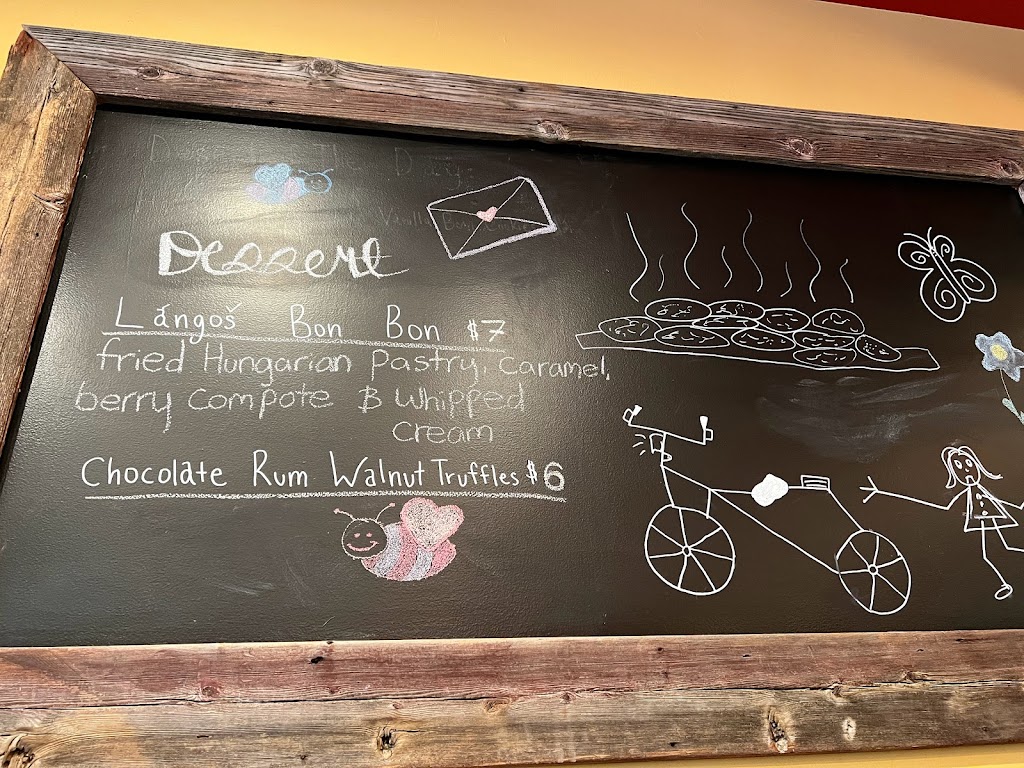 Dessert
Lángoš Bon Bon $7
fried Hungarian Pastry, Caramel,
berry Compote & Whipped
Cream
Chocolate Rum Walnut Truffles $6